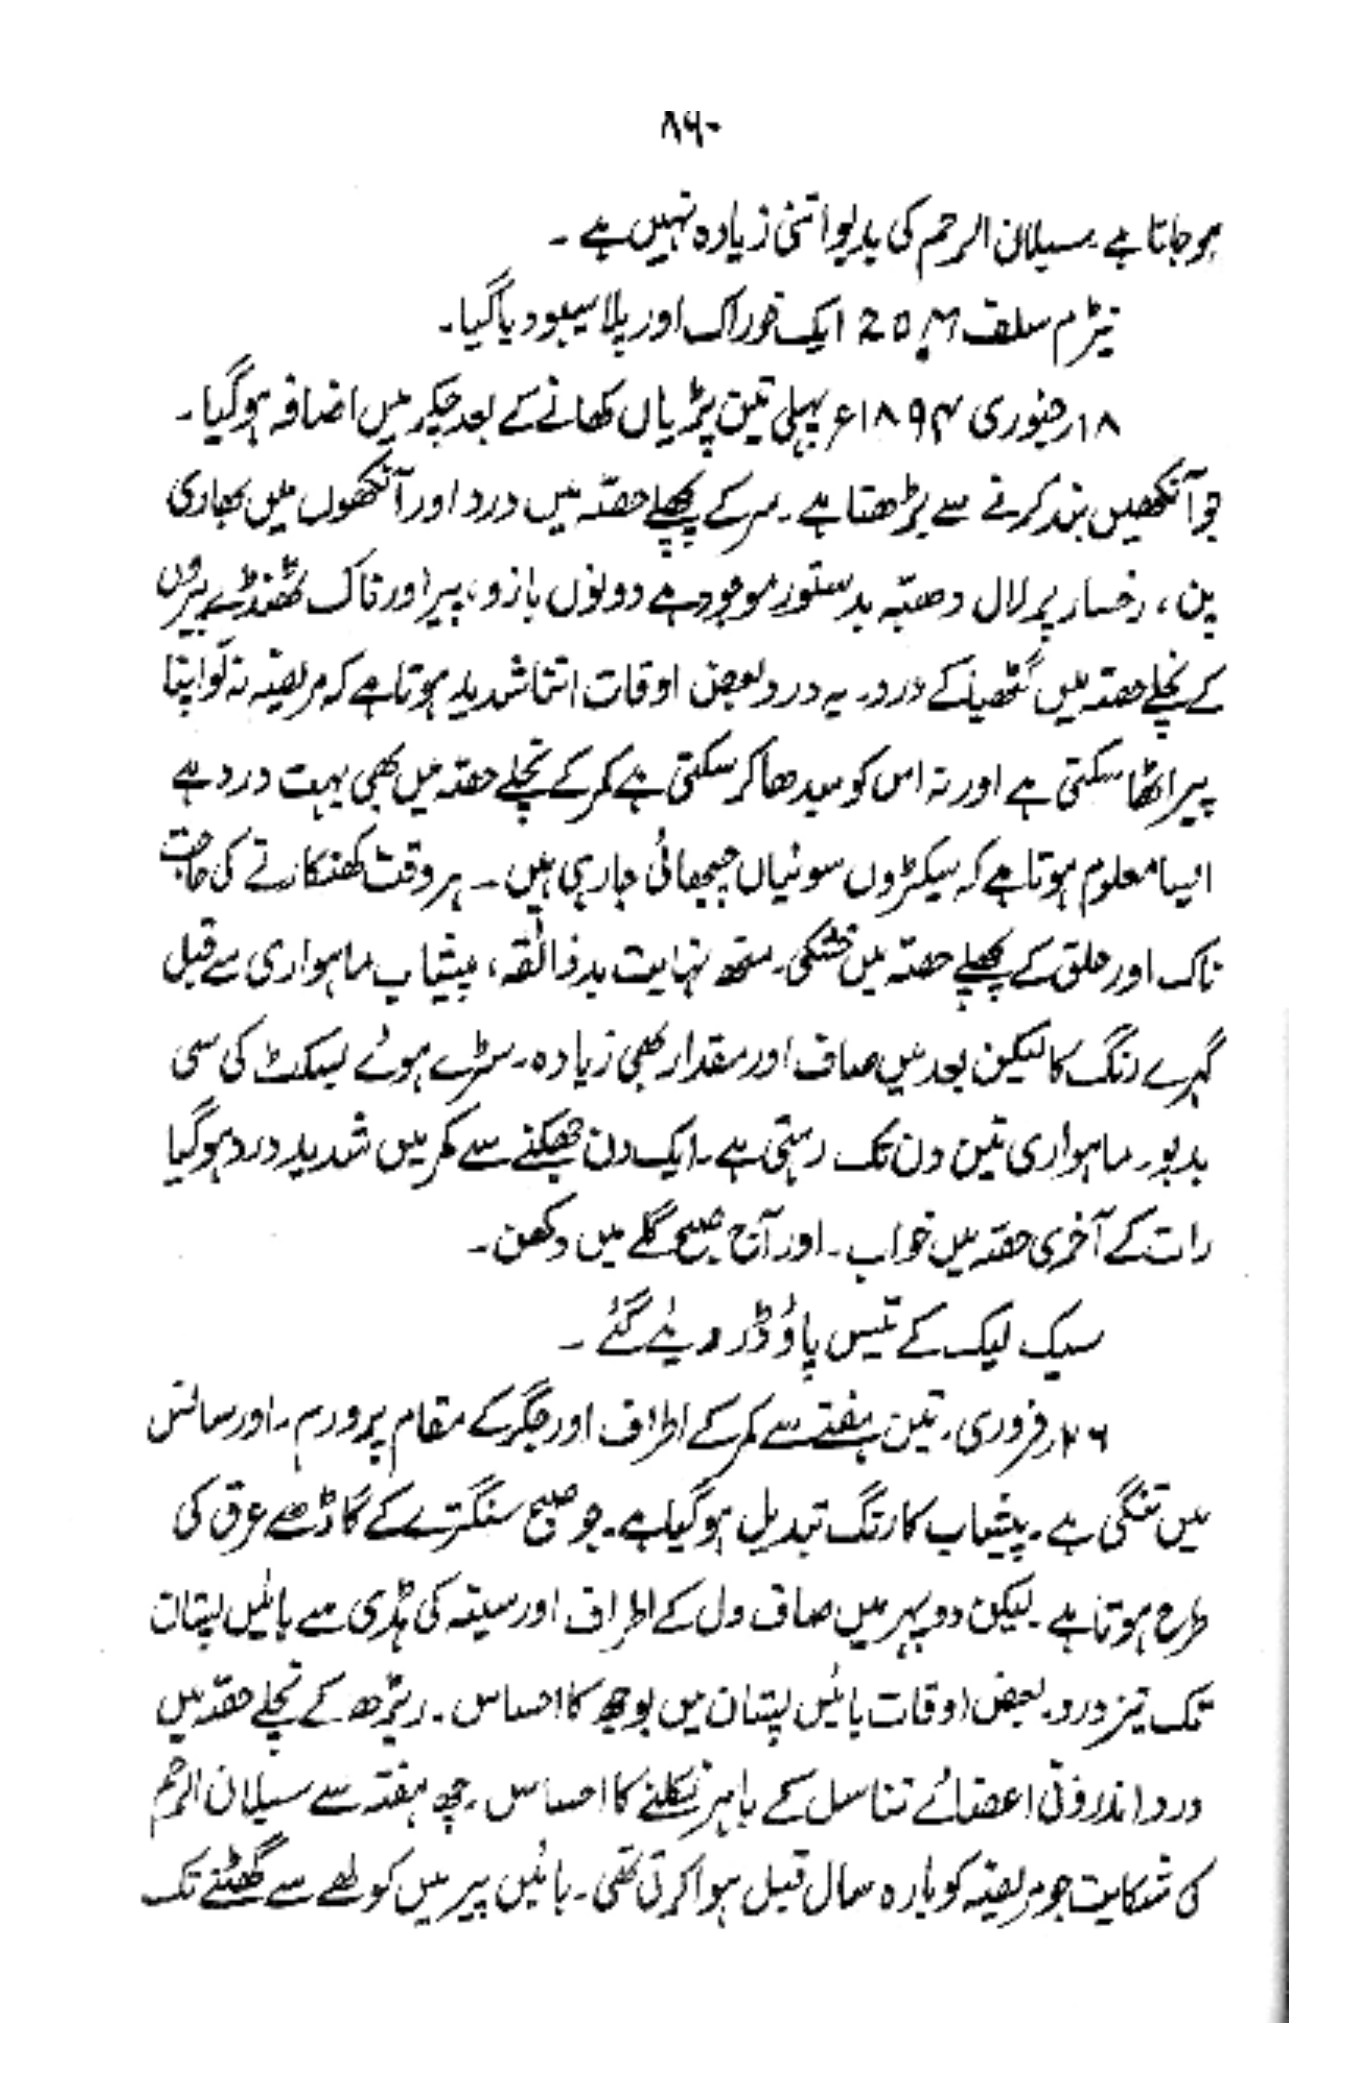 ۸۶۰
ہو جاتا ہے۔ سیلان الرحم کی بدبو اتنی زیادہ نہیں ہے۔
نیٹرم سلف 20 M ایک خوراک اور پلاسیبو دیا گیا۔
۱۸ر جنوری ۱۸۹۴ء پہلی تین پڑیاں کھانے کے بعد چکر میں اضافہ ہو گیا۔
جو آنکھیں بند کرنے سے بڑھتا ہے۔ سر کے پچھلے حصّہ میں درد اور آنکھوں میں بھاری
پن، رخسار پر لال دھبّہ بدستور موجود ہے دونوں بازو، پیر اور ناک ٹھنڈے پیروں
کے نچلے حصّہ میں گٹھیا کے درد۔ یہ درد بعض اوقات اتنا شدید ہوتا ہے کہ مریضہ نہ تو اپنا
پیر اٹھا سکتی ہے اور نہ اس کو سیدھا کر سکتی ہے کمر کے نچلے حصّہ میں بھی بہت درد ہے
ایسا معلوم ہوتا ہے کہ سیکڑوں سوئیاں چبھائی جا رہی ہیں۔ ہر وقت کھنکارنے کی حاجت
ناک اور حلق کے پچھلے حصّہ میں خشکی۔ منھ نہایت بدذائقہ، پیشاب ماہواری سے قبل
گہرے رنگ کا لیکن بعد میں صاف اور مقدار بھی زیادہ۔ سڑے ہوئے بسکٹ کی سی
بدبو۔ ماہواری تین دن تک رہتی ہے۔ ایک دن جھکنے سے کمر میں شدید درد ہو گیا
رات کے آخری حصّہ میں خواب۔ اور آج صبح گلے میں دکھن۔
سیک لیک کے تیس پاؤڈر دیئے گئے۔
۲۶ر فروری۔ تین ہفتے سے کمر کے اطراف اور جگر کے مقام پر ورم۔ اور سانس
میں تنگی ہے۔ پیشاب کا رنگ تبدیل ہو گیا ہے۔ جو صبح سنگترے کے گاڑھے عرق کی
طرح ہوتا ہے۔ لیکن دوپہر میں صاف دل کے اطراف اور سینہ کی ہڈی سے بائیں پستان
تک تیز درد۔ بعض اوقات بائیں پستان میں بوجھ کا احساس۔ ریڑھ کے نچلے حصّہ میں
درد اندرونی اعضائے تناسل کے باہر نکلنے کا احساس۔ چھ ہفتہ سے سیلان الرحم
کی شکایت جو مریضہ کو بارہ سال قبل ہوا کرتی تھی۔ بائیں پیر میں کولھے سے گھٹنے تک